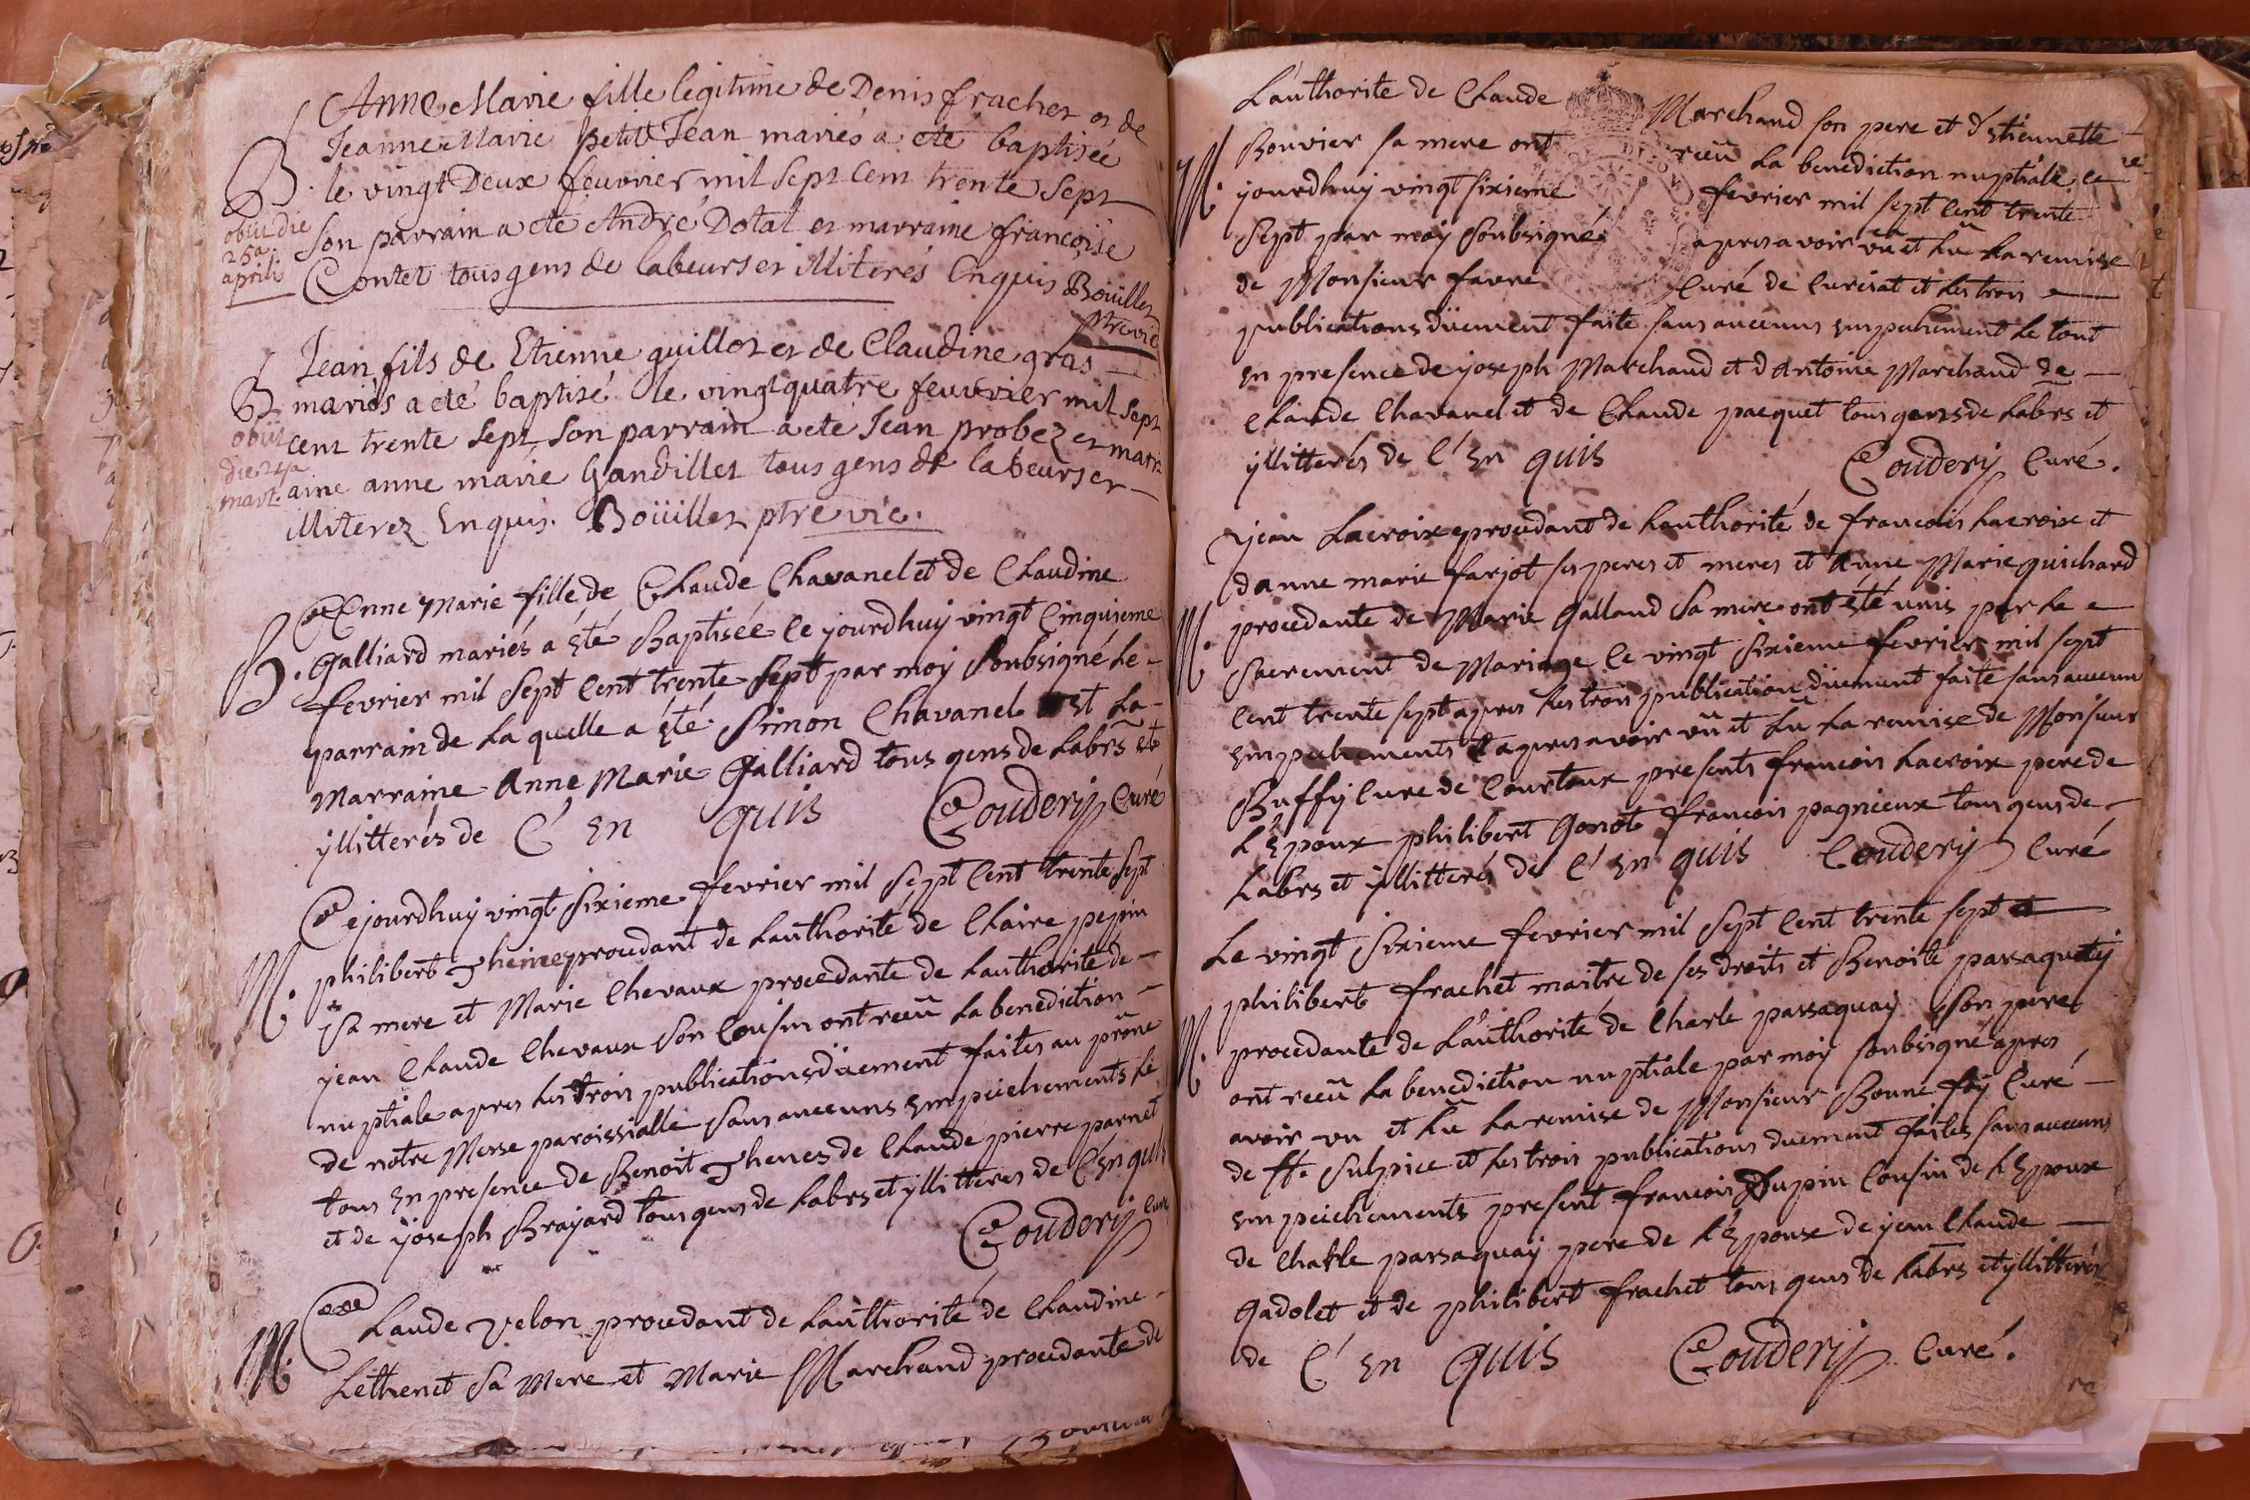 Anne Marie fille legitime de Denis frachet et de
Jeanne Marie petit Jean mariés a eté baptisée
B. le vingt Deux feuvrier mil sept cent trente sept
obiit die
25a
aprili
son parrain a eté André Dotal et marraine françoise
Contet tous gens de labeurs et illiterés Enquis Boüillet
ptre vic
Jean fils de Etienne guillot et de Claudine gras
B mariés a eté baptisé le vingt quatre feuvrier mil sept
obiit
die 24a
mart.
cent trente sept son parrain a eté Jean probez et marr
aine anne marie Gandillet tous gens de labeurs et
illiterez Enquis. Boüillet ptre vic.
Anne Marie fille de Claude Chavanel et de Claudine
B. Galliard mariés a été Baptisée ce jourdhuy vingt Cinquieme
fevrier mil sept Cent trente sept par moy soubsigné Le
parrain de La quelle a été Simon Chavanel et La
Marraine Anne Marie Galliard tous gens de Labrs et
yllitterés de C' En quis Coudery Curé
Ce jourdhuy vingt sixieme fevrier mil sept Cent trente sept
M. philibert procedant de Lauthorité de Claire pepin
sa mere et Marie Chevaux procedante de Lauthorité de
jean Claude Chevaux son Cousin ont reçû La benediction
nuptiale apres Les trois publications düement faites au prône
de notre Messe paroissialle sans aucuns Empechements Le
tous En presence de Benoit de Claude pierre parnet
et de yoseph Brayard tous gens de Labrs et yllitteres de C'En quis
Coudery Curé
M. Claude velon procedant de Lauthorité de Claudine
Lethenet sa Mere et Marie Marchand procedante de
Lauthorite de Claude Marchand son pere et d'Etiennette
M. Bouvier sa mere ont reçû La benediction nuptiale ce
jourdhuy vingt sixieme fevrier mil sept Cent trente
sept par moy soubsigné apres avoir vû et Lû La remise
de Monsieur favre Curé de Curciat et Les trois
publications düement faite sans aucuns Empechement Le tout
En presence de yoseph Marchand et d Antoine Marchand de
Claude Chavanel et de Claude pacquet tous gens de Labrs et
yllitterés de C' En quis Coudery Curé.
jean Lacroix procedant de Lauthorité de francois Lacroix et
d'anne marie farjot ses peres et meres et Anne Marie guichard
M. procedante de Marie Galland sa mere ont été unis par Le
sacrement de Mariage Ce vingt sixieme fevrier mil sept
Cent trente sept apres Les trois publication düement faite sans aucun
Empechements et apres avoir vû et Lû La remise de Monsieur
Buffy Cure de Courtoux presents francois Lacroix pere de
L'Epoux philibert Gonot francois pagnieux tous gens de
Labrs et yllitterés de C' En quis Coudery Curé
Le vingt sixieme fevrier mil sept Cent trente sept
philibert frachet maitre de ses droits et Benoite passaquay
M. procedante de Lauthorité de Charle passaquay son pere
ont reçû La benediction nuptiale par moy soubsigné apres
avoir vu et Lû La remise de Monsieur Bonne foy Curé
de St. Sulpice et Les trois publications duement faites sans aucuns
Empeichements present francois Dupin Cousin de L'Epoux
de Charle passaquay pere de L'Epouse de jean Claude
Gadolet et de philibert frachet tous gens de Labrs et yllitterés
de C' En quis Coudery Curé.